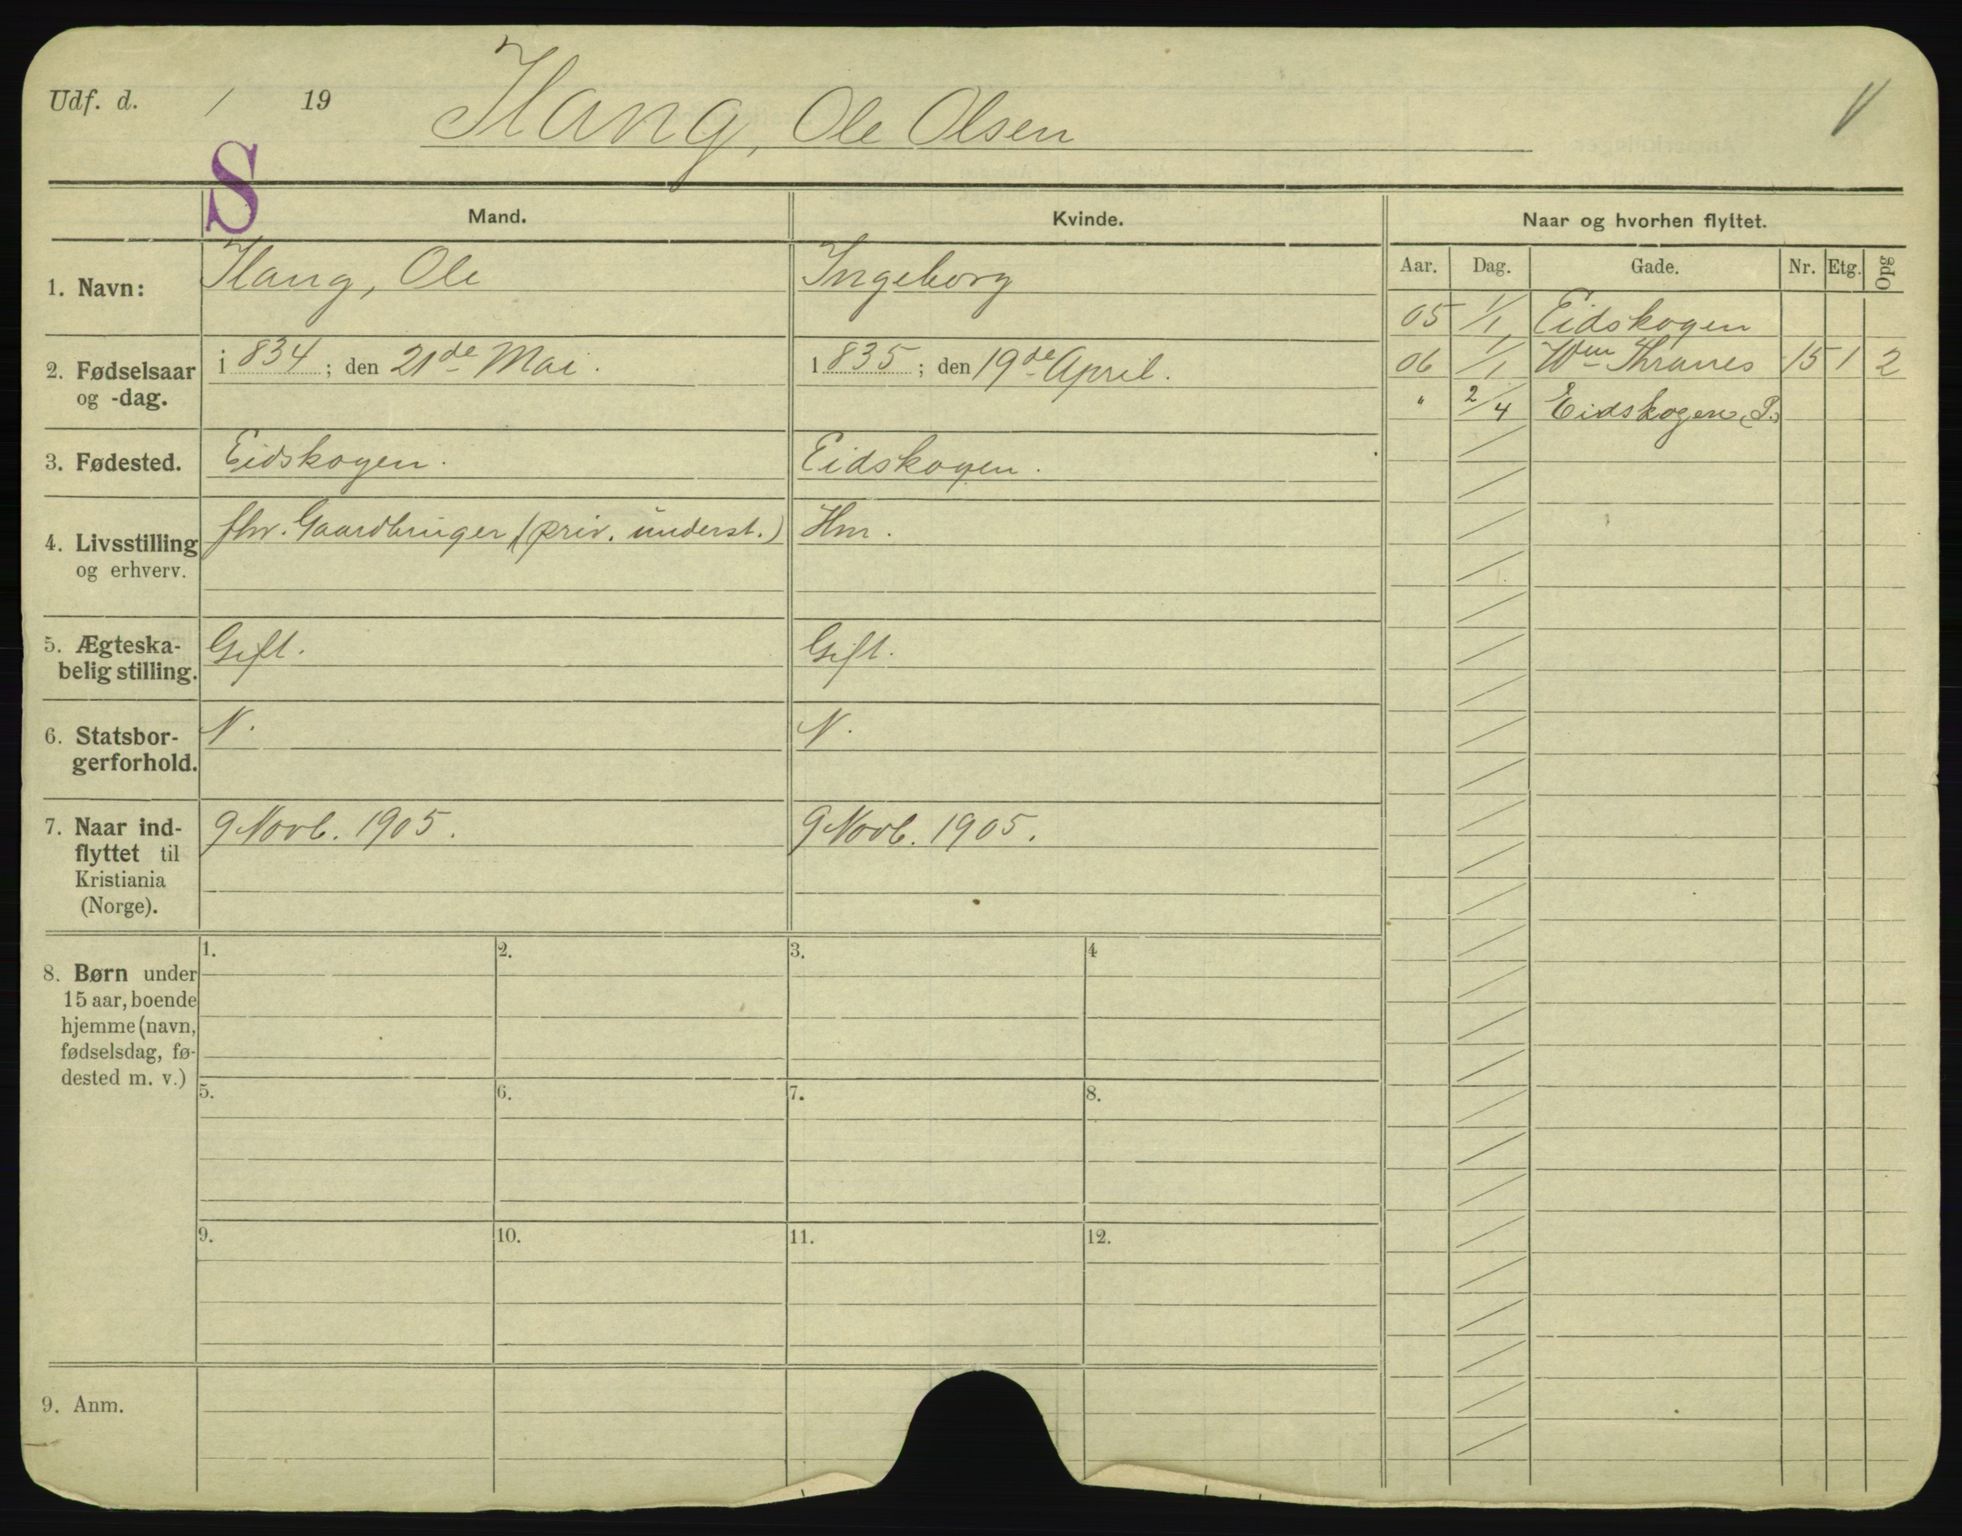 Udf. d. / 19
Ilang, Ole Olsen
V
S
Mand.
Kvinde.
Naar og hvorhen flyttet.
Aar. Dag. Gade. Nr. Etg. Opg
1. Navn:
Ilang, Ole
Ingeborg
05 1/1 Eidskogen
06 1/1 Wm Thranes 15 1 2
" 2/4 Eidskogen, P.
2. Fødselsaar
og -dag.
i 834; den 21de Mai.
i 835; den 19de April.
3. Fødested.
Eidskogen.
Eidskogen.
4. Livsstilling
og erhverv.
fhv. Gaardbruger (priv. underst.)
Hm.
5. Ægteska-
belig stilling.
Gift.
Gift.
6. Statsbor-
gerforhold.
N.
N.
7. Naar ind-
flyttet til
Kristiania
(Norge).
9 Novb. 1905.
9 Novb. 1905.
8. Børn under
15 aar, boende
hjemme (navn,
fødselsdag, fø-
dested m. v.)
1. 2. 3. 4
5. 6. 7. 8.
9. 10. 11. 12.
9. Anm.